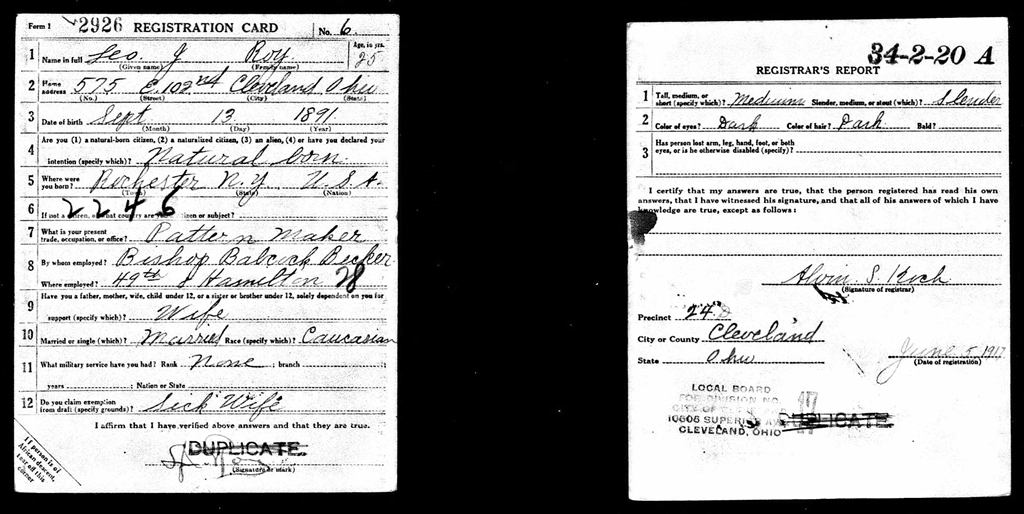 Form 1 2926 REGISTRATION CARD No. 6
1 Name in full Geo. J Roy Age, in yrs. 25
(Given name) (Family name)
2 Home address 575 E. 102nd Cleveland Ohio
(No.) (Street) (City) (State)
3 Date of birth Sept 13 1891
(Month) (Day) (Year)
4 Are you (1) a natural-born citizen, (2) a naturalized citizen, (3) an alien, (4) or have you declared your
intention (specify which)? Natural born
5 Where were you born? Rochester N.Y U.S.A.
(Town) (State) (Nation)
2246
6 If not a citizen, of what country are you a citizen or subject?
7 What is your present trade, occupation, or office? Pattern Maker
8 By whom employed? Bishop Babcock Becker
Where employed? 49th & Hamilton 28
9 Have you a father, mother, wife, child under 12, or a sister or brother under 12, solely dependent on you for
support (specify which)? Wife
10 Married or single (which)? Married Race (specify which)? Caucasian
11 What military service have you had? Rank None; branch
years; Nation or State
12 Do you claim exemption from draft (specify grounds)? Sick Wife
I affirm that I have verified above answers and that they are true.
DUPLICATE
(Signature or mark)
If person is of African descent, tear off this corner
34-2-20 A
REGISTRAR'S REPORT
1 Tall, medium, or short (specify which)? Medium Slender, medium, or stout (which)? Slender
2 Color of eyes? Dark Color of hair? Dark Bald?
3 Has person lost arm, leg, hand, foot, or both
eyes, or is he otherwise disabled (specify)?
I certify that my answers are true, that the person registered has read his own
answers, that I have witnessed his signature, and that all of his answers of which I have
knowledge are true, except as follows:
Alvin S. Koch
(Signature of registrar)
Precinct 24
City or County Cleveland
State Ohio June 5, 1917
(Date of registration)
LOCAL BOARD
FOR DIVISION NO. 17
CITY OF
10606 SUPERIOR DUPLICATE
CLEVELAND, OHIO